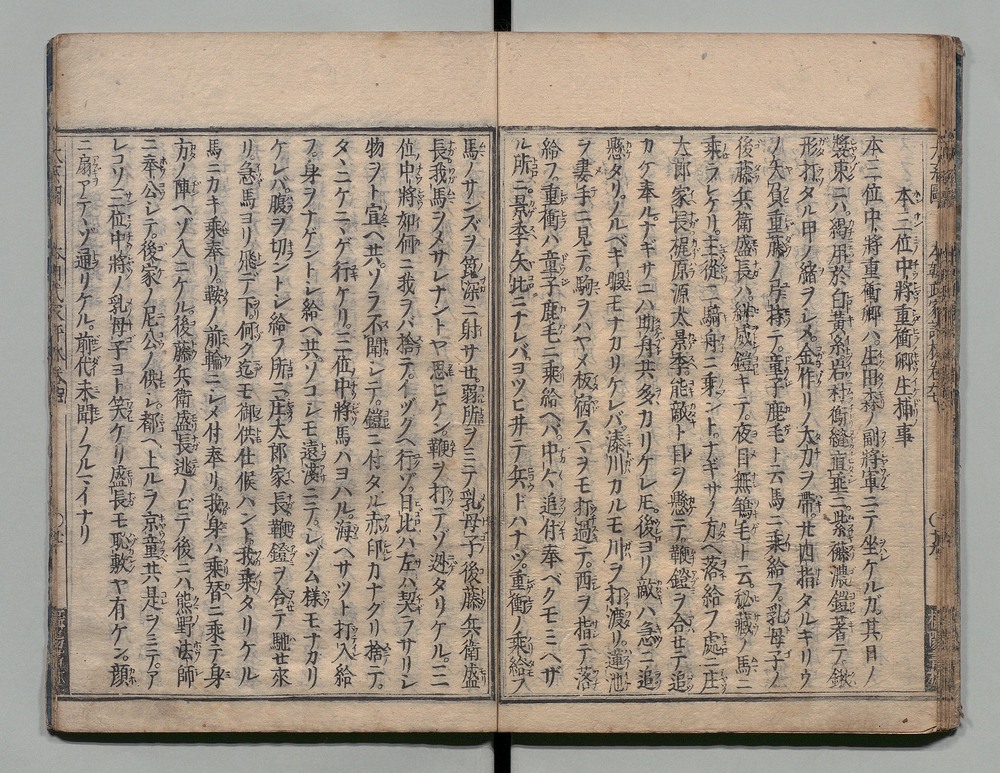 本三位中將重衡卿生捕事
本三位中將重衡卿ハ、生田森ノ副將軍ニテ坐ケルガ、其日ノ
裝束ニハ、褐用於白黄糸岩村鵆縫直垂ニ、紫裾濃鎧著テ、鍬
形打タル甲ノ緒ヲシメ、金作リノ太刀ヲ帶セ、廿四指タルキリウ
ノ矢負、重藤ノ弓持テ、童子鹿毛ト云馬ニ乘給フ、乳母子ノ
後藤兵衛盛長ハ、緋威鎧キテ、夜目無鴾毛ト云秘藏ノ馬ニ
乘ラレケリ。主從二騎舟ニ乘ントナギサノ方ヘ落給フ處ニ、庄
太郎家長梶原源太景季能敵ト目ヲ懸テ、鞭鐙ヲ合セテ追
カケ奉ル、ナギサニハ助舟共多カリケレ𪜈、後ヨリ敵ハ急ニ追
懸タリ、ノルベキ暇モナカリケレバ、湊川カルモ川ヲ打渡リ、蓮池
ヲ妻手ニ見テ、駒ヲハヤメ板宿スマヲモ打過テ、西ヲ指テ落
給フ、重衡ハ童子鹿毛ニ乘給ヘバ、中〱追付奉ベクモミヘザ
ル所ニ、景季矢比ニナレバ、ヨツピキテ兵ドハナツ、重衡ノ乘給フ
馬ノサンズヲ箆深ニ射サセ、弱所ヲミテ、乳母子後藤兵衛盛
長、我馬ヲメサレナントヤ思ヒケン、鞭ヲ打テゾ迯タリケル。三
位中將如何ニ我ヲバ捨テ、イヅクヘ行ゾ、日比ハ左ハ契ラサリシ
物ヲト宣ヘ共、ソラ不聞シテ、鎧ニ付タル赤印カナグリ捨テ、
タヽニケニニゲ行ケリ。三位中將馬ハヨハル、海ヘサツト打入給
フ、身ヲナゲントシ給ヘ共、ソコシモ遠淺ニテ、シヅム樣モナカリ
ケレバ、腹ヲ切ントシ給フ所ニ、庄太郎家長鞭鐙ヲ合テ馳せ來
リ、急馬ヨリ飛デ下、何ク迄モ御供仕候ハントト、我乘タリケル
馬ニカキ乘奉リ、鞍ノ前輪ニシメ付奉リ、我身ハ乘替ニ乘テ、身
方ノ陣ヘゾ入ニケル。後藤兵衛盛長逃ノビテ、後ニハ熊野法師
ニ奉公シテ、後家ノ尼公ノ供シ、都ヘ上ルヲ、京童共是ヲミテ、ア
レコソ三位中將ノ乳母子ヨト笑ケリ、盛長モ恥敷ヤ有ケン、顔
ニ扇アテヽゾ通リケル。前代未聞ノフルマイナリ